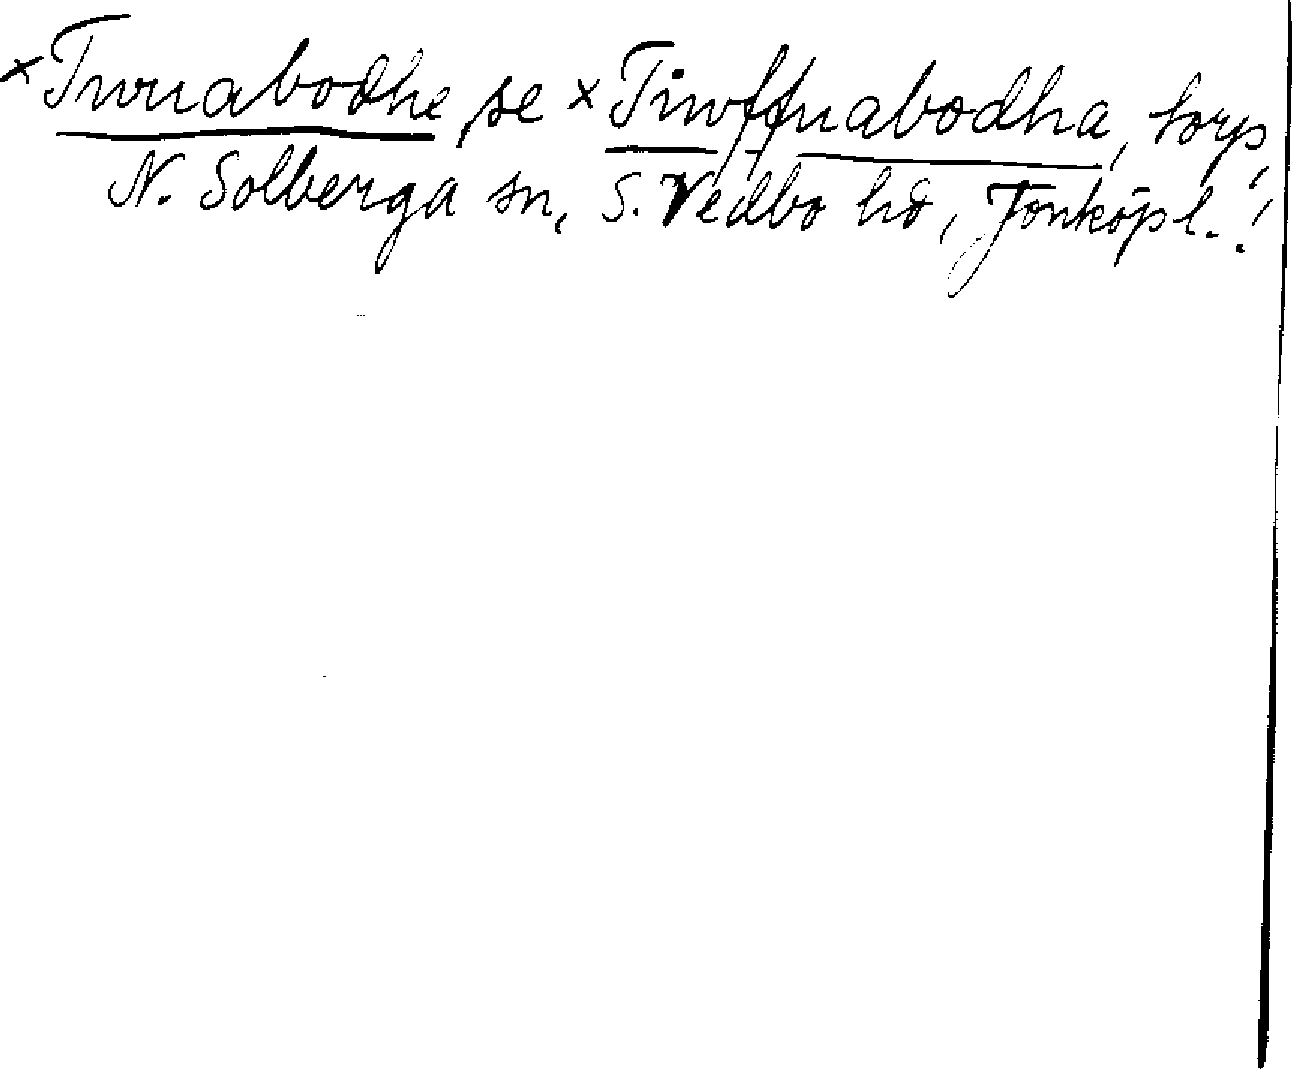 ×Twnabodhe se ×Tiwffnabodha, torp,
N. Solberga sn, S. Vedbo hd, Jönköp l.!